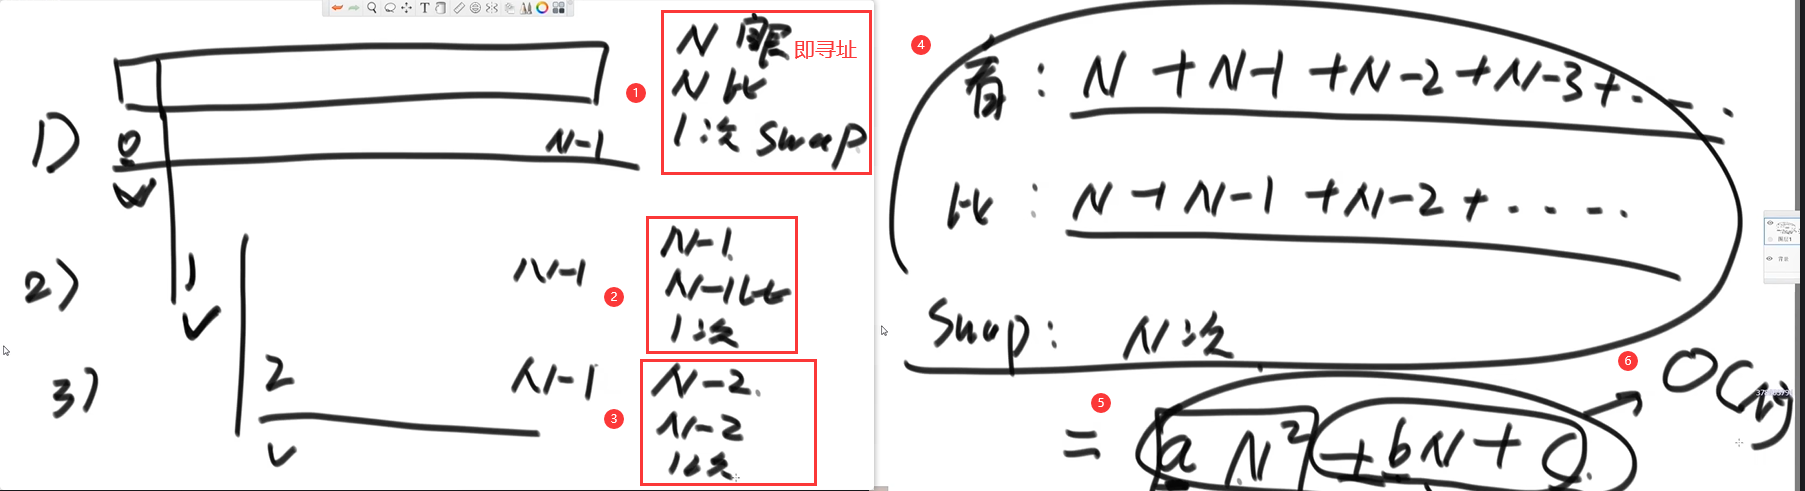 1)
0
N-1
N 眼 即寻址
N 比
1次 swap
1
2)
1
N-1
2
N-1
N-1比
1次
3)
2
N-1
3
N-2
N-2
1次
4
看: N + N-1 + N-2 + N-3 + ....
比: N + N-1 + N-2 + .....
swap: N次
5
= a N² + bN + C
6